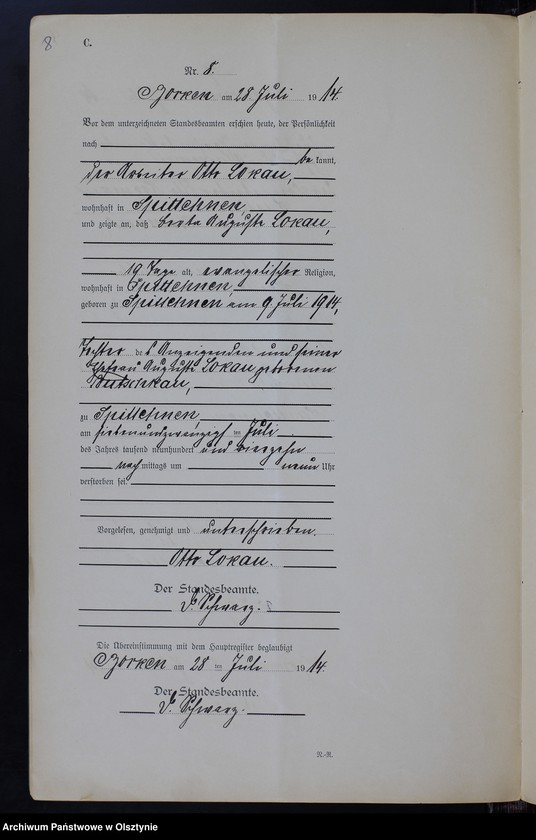 8
C.
Nr. 8.
Borken am 28 Juli 1914.
Vor dem unterzeichneten Standesbeamten erschien heute, der Persönlichkeit
nach
be kannt,
der Arbeiter Otto Lokau,
wohnhaft in Spittehnen,
und zeigte an, daß Berta Auguste Lokau,
19 Tage alt, evangelischer Religion,
wohnhaft in Spittehnen
geboren zu Spittehnen, am 9. Juli 1914,
Tochter des Anzeigenden und seiner
Ehefrau Auguste Lokau geborenen
zu Spittehnen
am siebenundzwanzigst en Juli
des Jahres tausend neunhundert und vierzehn
nach mittags um neun Uhr
verstorben sei.
Vorgelesen, genehmigt und unterschrieben.
Otto Lokau.
Der Standesbeamte.
Schwarz.
Die Übereinstimmung mit dem Hauptregister beglaubigt
Borken am 28 ten Juli 1914.
Der Standesbeamte.
Schwarz.
N.-R.
Archiwum Państwowe w Olsztynie